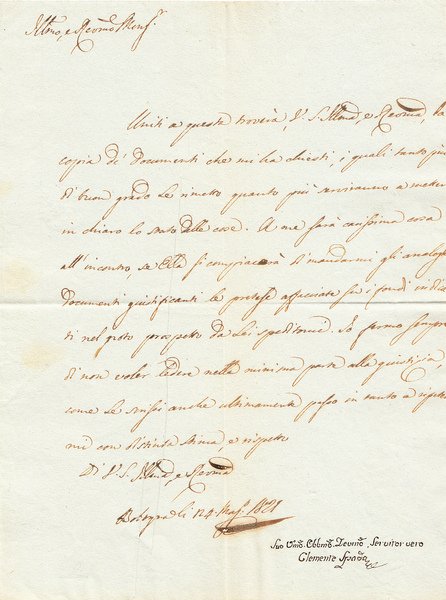 Illmo, e Rēvmo Monsr.
Uniti a questa troverà, V. S. Illma, e Revma, la
copia de' Documenti che mi ha chiesti, i quali tanto più
di buon grado Le rimetto quanto più serviranno a metter
in chiaro lo stato delle cose. A me sarà carissima cosa
all'incontro, se Ella si compiacerà di mandarmi gli analoghi
Documenti giustificanti le pretese affacciate su i fondi indica
ti nel prospetto da Lei speditomi. Io fermo sempre
di non voler ledere nella minima parte alla giustizia,
come Le scrissi anche ultimamente passo in tanto a ripeter
mi con distinta stima, e rispetto
Di V. S. Illma, e Revma
Bologna li 24 1821
Suo Umo. Obbmo. Devmo. Servitor vero
Clemente Spada